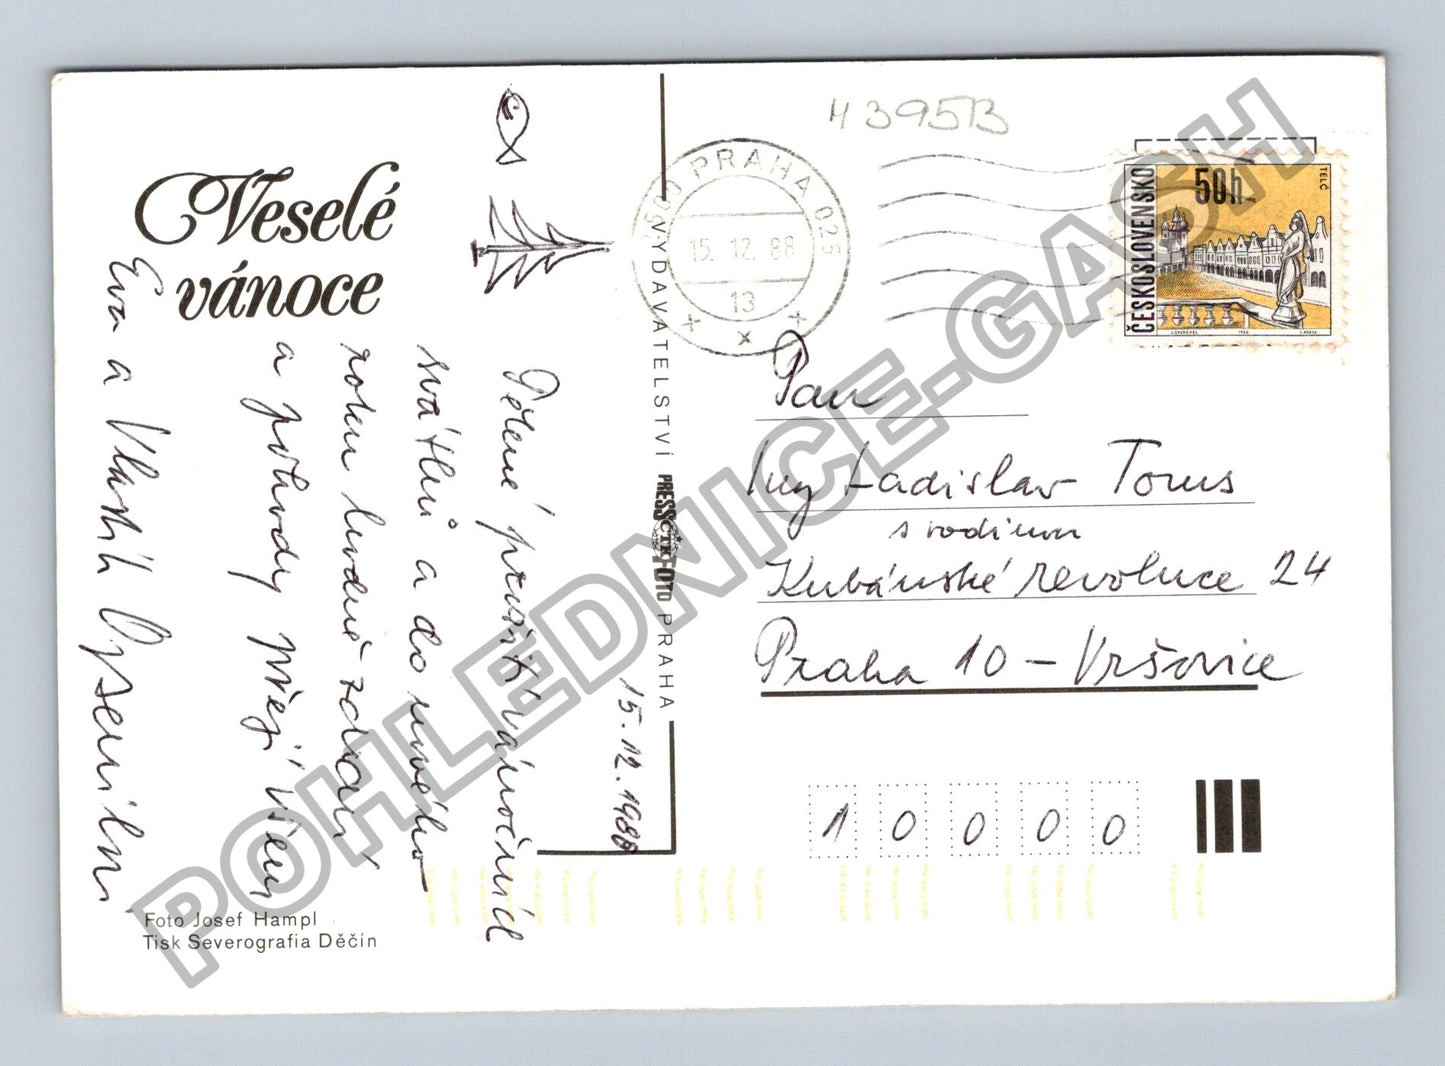 Veselé
vánoce
Pěkné prožití vánočních
svátků a do nového
roku hodně zdraví
a pohody přejí Vám
Eva a Vlastik
15.12.1988
Foto Josef Hampl
Tisk Severografia Děčín
VYDAVATELSTVÍ PRESSFOTO PRAHA
ČTK
PRAHA 025
15.12.88
13
x
M 395B
ČESKOSLOVENSKO
50h
TELČ
Pan
Ing Ladislav Toms
s rodinou
Kubánské revoluce 24
Praha 10 - Vršovice
1 0 0 0 0
POHLEDNICE-GASH